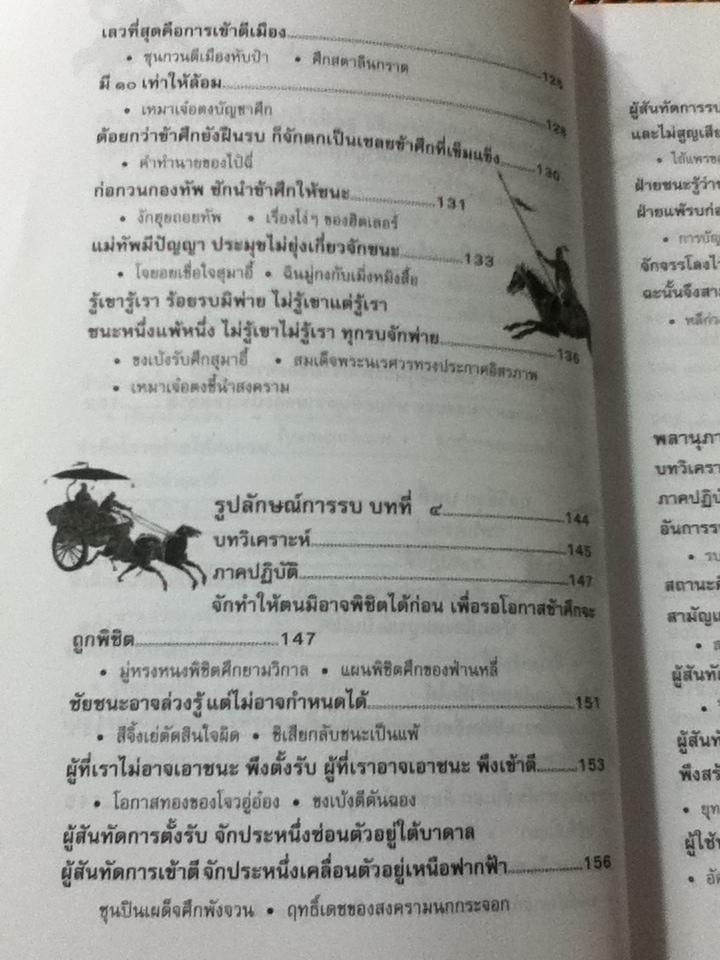 เลวที่สุดคือการเข้าตีเมือง 125
• ซุนกวนตีเมืองหับป๋า • ศึกสตาลินกราด
มี ๑๐ เท่าให้ล้อม 128
• เหมาเจ๋อตงบัญชาศึก
ด้อยกว่าข้าศึกยังฝืนรบ ก็จักตกเป็นเชลยข้าศึกที่เข็มแข็ง 130
• คำทำนายของไป๋ฉี่
ก่อกวนกองทัพ ชักนำข้าศึกให้ชนะ 131
• งักฮุยถอยทัพ • เรื่องโง่ๆ ของฮิตเลอร์
แม่ทัพมีปัญญา ประมุขไม่ยุ่งเกี่ยวจักชนะ 133
• โจยอยเชื่อใจสุมาอี้ • ฉินมู่กงกับเมิ่งหมิงสื้อ
รู้เขารู้เรา ร้อยรบมิพ่าย ไม่รู้เขาแต่รู้เรา
ชนะหนึ่งแพ้หนึ่ง ไม่รู้เขาไม่รู้เรา ทุกรบจักพ่าย 136
• ขงเบ้งรับศึกสุมาอี้ • สมเด็จพระนเรศวรทรงประกาศอิสรภาพ
• เหมาเจ๋อตงชี้นำสงคราม
รูปลักษณ์การรบ บทที่ ๔ 144
บทวิเคราะห์ 145
ภาคปฏิบัติ 147
จักทำให้ตนมิอาจพิชิตได้ก่อน เพื่อรอโอกาสข้าศึกจะ
ถูกพิชิต 147
• มู่หรงหนงพิชิตศึกยามวิกาล • แผนพิชิตศึกของฟ่านหลี่
ชัยชนะอาจล่วงรู้ แต่ไม่อาจกำหนดได้ 151
• สีจิ้งเย่ตัดสินใจผิด • ชิเสียกลับชนะเป็นแพ้
ผู้ที่เราไม่อาจเอาชนะ พึงตั้งรับ ผู้ที่เราอาจเอาชนะ พึงเข้าตี 153
• โอกาสทองของโจวอู่อ๋อง • ขงเบ้งตีตันฉอง
ผู้สันทัดการตั้งรับ จักประหนึ่งซ่อนตัวอยู่ใต้บาดาล
ผู้สันทัดการเข้าตี จักประหนึ่งเคลื่อนตัวอยู่เหนือฟากฟ้า 156
ซุนปินเผด็จศึกพังจวน • ฤทธิ์เดชของสงครามนกกระจอก
ผู้สันทัดการรบ
และไม่สูญเสีย
ฝ่ายชนะรู้ว่า
ฝ่ายแพ้รบก่อ
ฉะนั้นจึงสา
บทวิเครา
ภาคปฏิบั
อันการร
ผู้สันทั
ผู้สันท
พึงสร้
ผู้ใช้